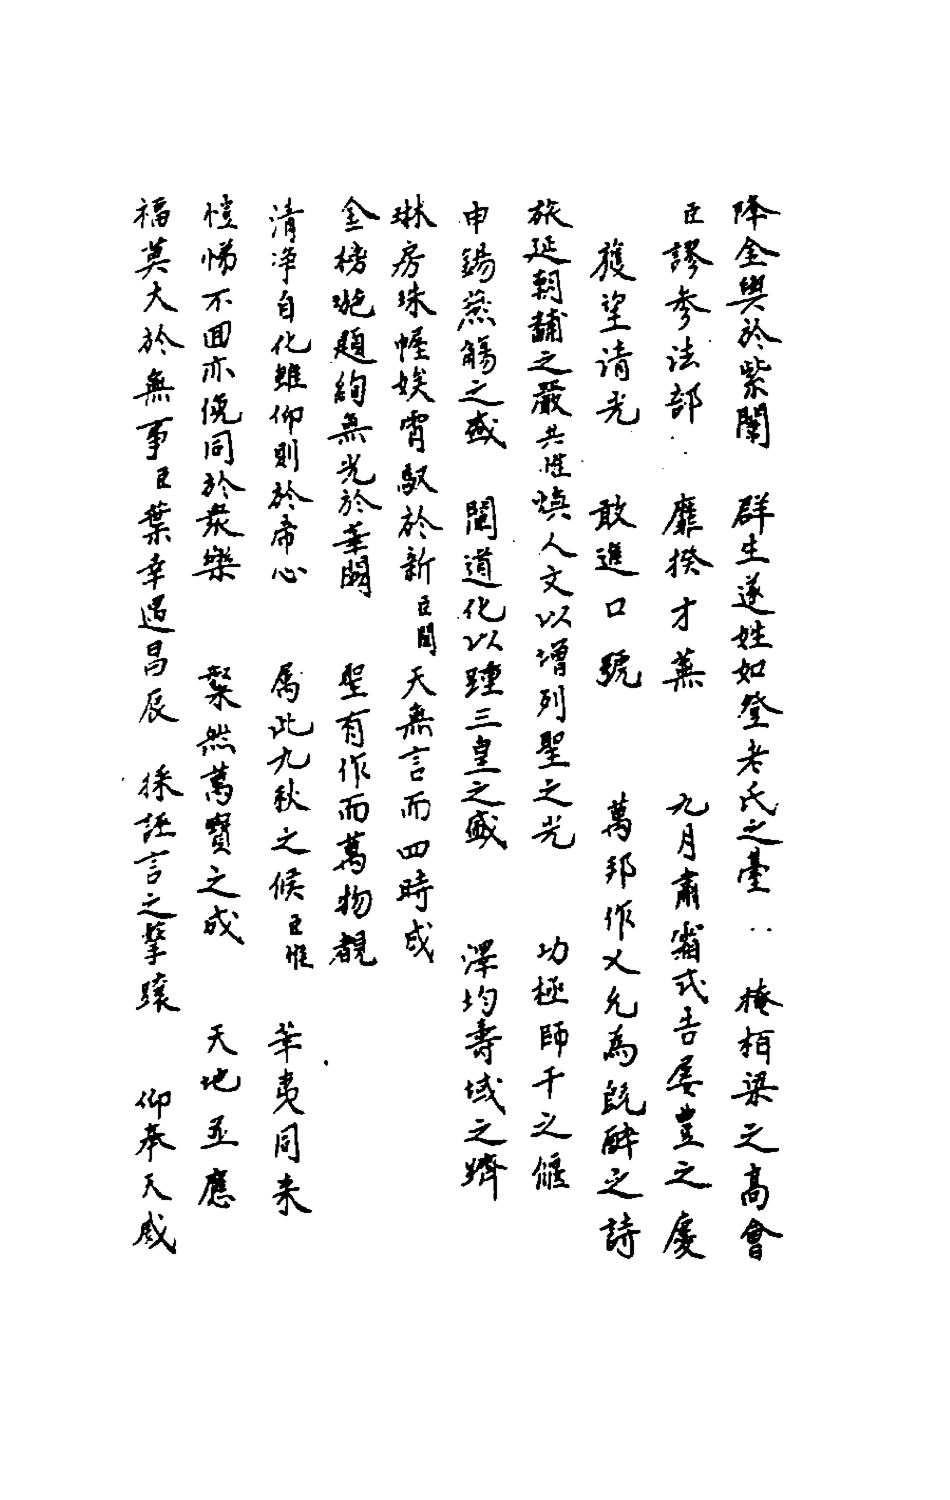 降金輿於紫闈 群生遂姓如登老氏之臺 掩栢梁之高會
臣謬參法部 靡揆才蕪 九月肅霜式告屡豊之慶
獲望清光 敢進口號 萬邦作乂允為既醉之詩
旅延朝黼之嚴共惟煥人文以增列聖之光 功極師干之偃
申錫燕觴之盛 闡道化以踵三皇之盛 澤均壽域之躋
琳房珠幄娭霄馭於新臣聞天無言而四時成
金榜璇題絢無光於華闕 聖有作而萬物覩
清浄自化雖仰則於帝心 属此九秋之候臣惟 華夷同来
愷悌不囬亦俛同於衆樂 粲然萬寶之成 天地並應
福莫大於無事臣葉幸遇昌辰 採誣言之擊轅 仰奉天威